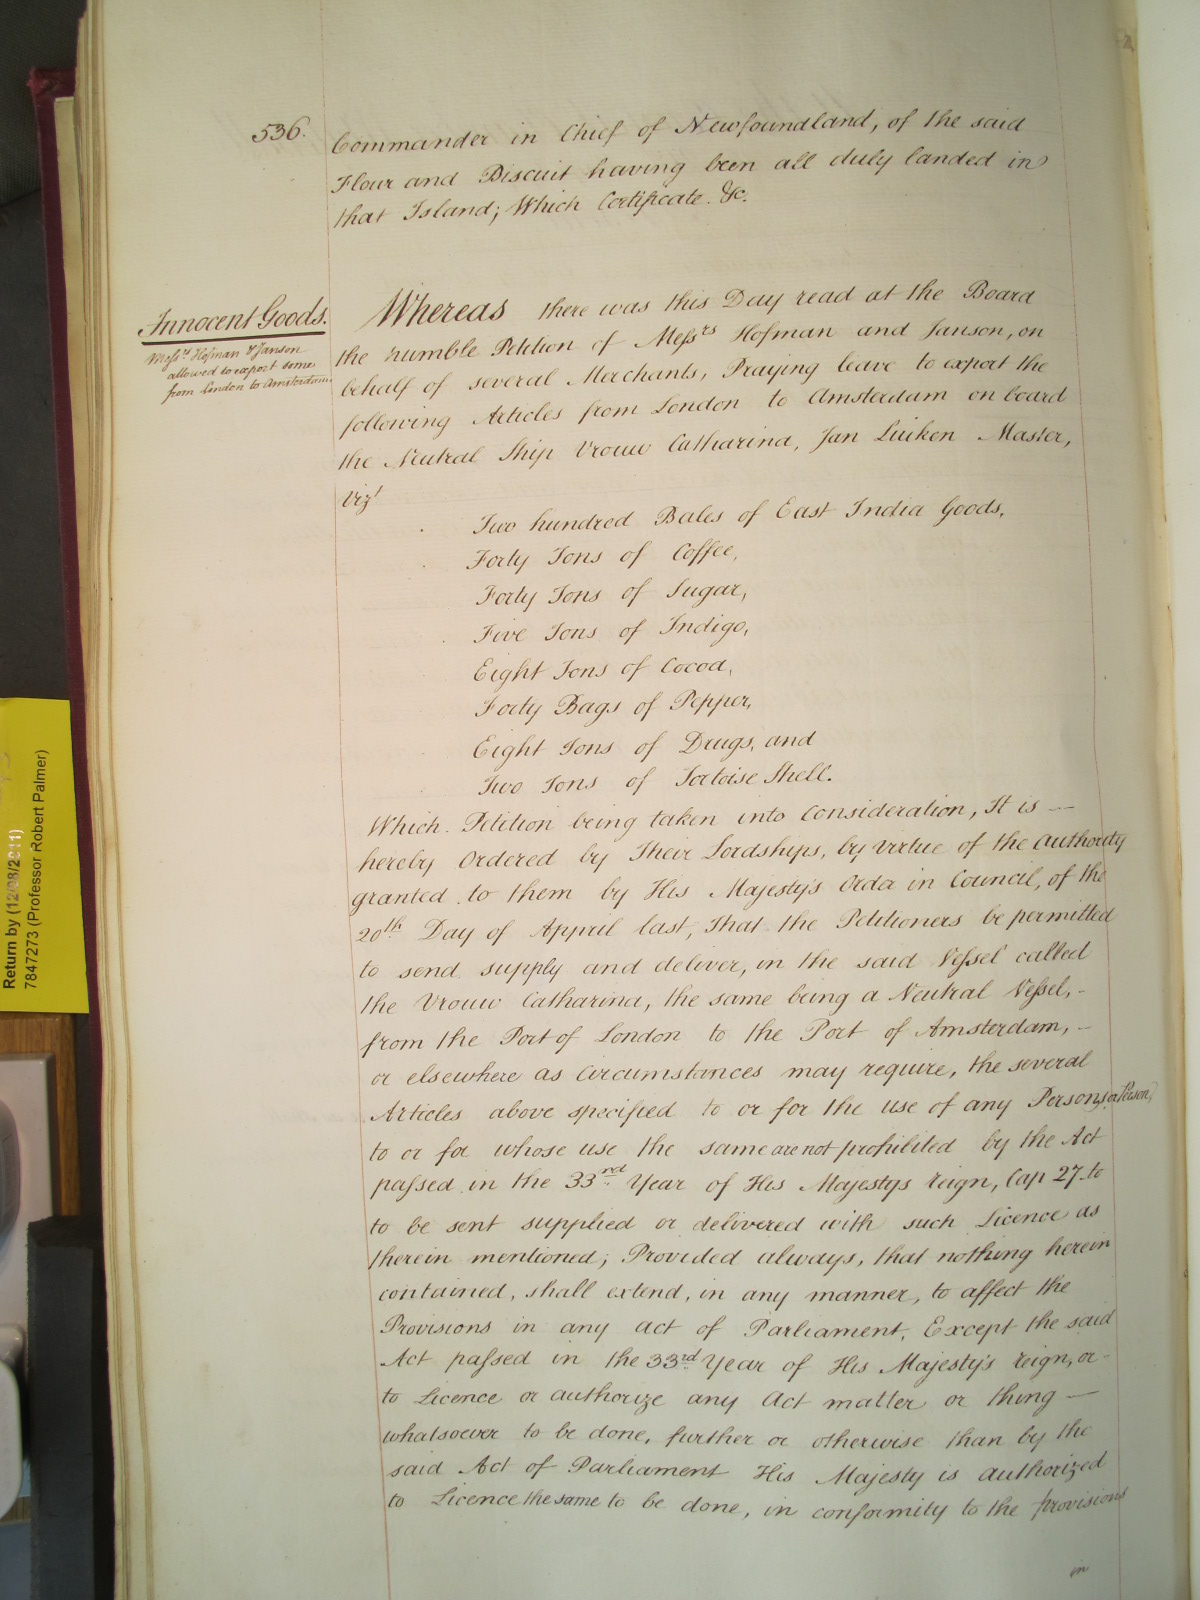 536.
Commander in Chief of Newfoundland, of the said
Flour and Biscuit having been all duly landed in
that Island; Which Certificate. &c.
Innocent Goods.
Messrs Hofman & Janson
allowed to export some
from London to Amsterdam.
Whereas there was this Day read at the Board
the humble Petition of Messrs Hofman and Janson, on
behalf of several Merchants, Praying leave to export the
following Articles from London to Amsterdam on board
the Neutral Ship Vrouw Catharina, Jan Luiken Master,
Vizt
Two hundred Bales of East India Goods,
Forty Tons of Coffee,
Forty Tons of Sugar,
Five Tons of Indigo,
Eight Tons of Cocoa,
Forty Bags of Pepper,
Eight Tons of Drugs, and
Two Tons of Tortoise Shell.
Which Petition being taken into Consideration, It is —
hereby Ordered by Their Lordships, by virtue of the authority
granted to them by His Majesty's Order in Council, of the
20th Day of Appril last, That the Petitioners be permitted
to send, supply and deliver, in the said Vessel called
the Vrouw Catharina, the same being a Neutral Vessel, -
from the Port of London to the Port of Amsterdam, -
or elsewhere as Circumstances may require, the several
Articles above specified to or for the use of any Persons or Person,
to or for whose use the same are not prohibited by the Act
passed in the 33nd Year of His Majestys reign, Cap 27. to
to be sent supplied or delivered with such Licence as
therein mentioned; Provided always, that nothing herein
contained, shall extend, in any manner, to affect the
Provisions in any act of Parliament, Except the said
Act passed in the 33rd Year of His Majesty's reign, or -
to Licence or authorize any Act matter or thing —
whatsoever to be done, further or otherwise than by the
said Act of Parliament His Majesty is authorized
to Licence the same to be done, in conformity to the provisions
in
Return by (12/08/2011)
7847273 (Professor Robert Palmer)